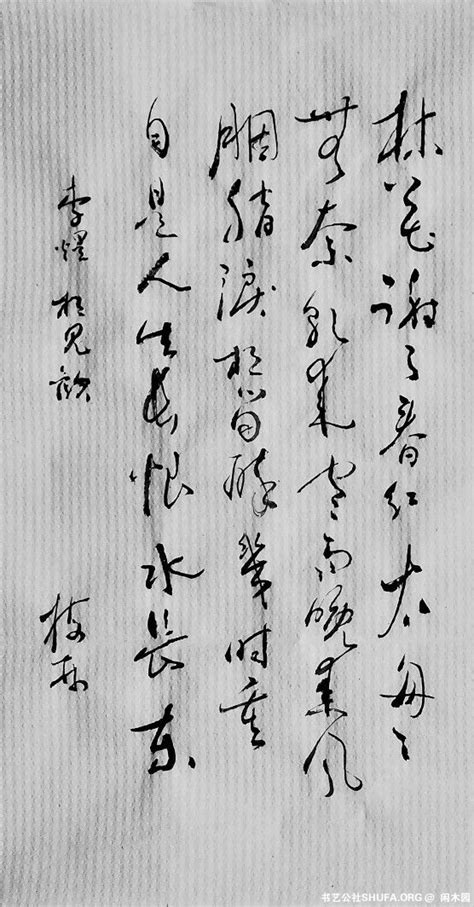 林花谢了春红太匆匆
無奈朝来寒雨晚来风
胭脂淚相留醉幾时重
自是人生長恨水長东
李煜相见歡
书艺公社SHUFA.ORG @ 闲木园